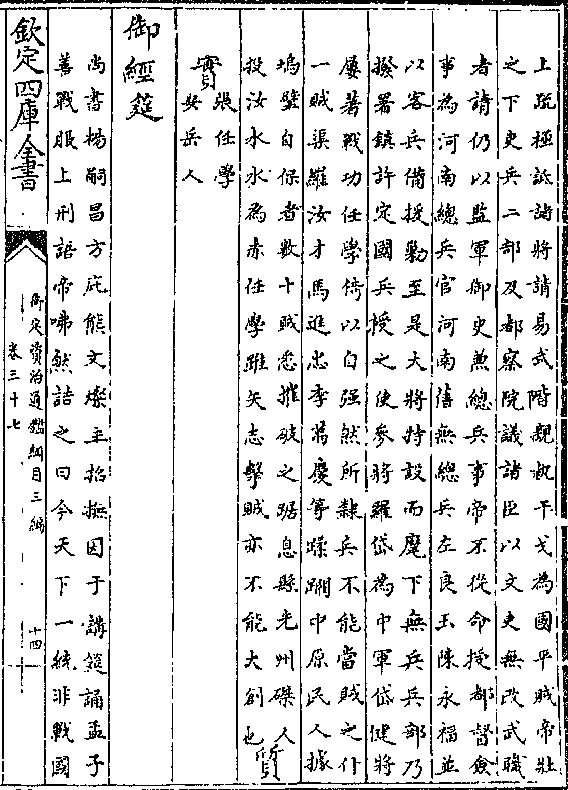 上疏極詆諸將請易武階親執干戈為國平賊帝壯
之下吏兵二部及都察院議諸臣以文吏無改武職
者請仍以監軍御史兼總兵事帝不從命授都督僉
事為河南總兵官河南舊無總兵左良玉陳永福並
以客兵備援勦至是大將特設而麾下無兵兵部乃
撥署鎮許定國兵授之使參將羅岱為中軍岱健將
屢著戰功任學倚以自强然所隸兵不能當賊之什
一賊渠羅汝才馬進忠李萬慶等蹂躪中原民人據
塢壁自保者數十賊悉摧破之踞息縣光州磔人
投汝水水為赤任學雖矢志擊賊亦不能大創也
質
實
張任學
安岳人
御經筵
尚書楊嗣昌方庇熊文燦主招撫因于講筵誦孟子
善戰服上刑語帝咈然詰之曰今天下一統非戰國
欽定四庫全書
御定資治通鑑綱目三編
卷三十七
十四